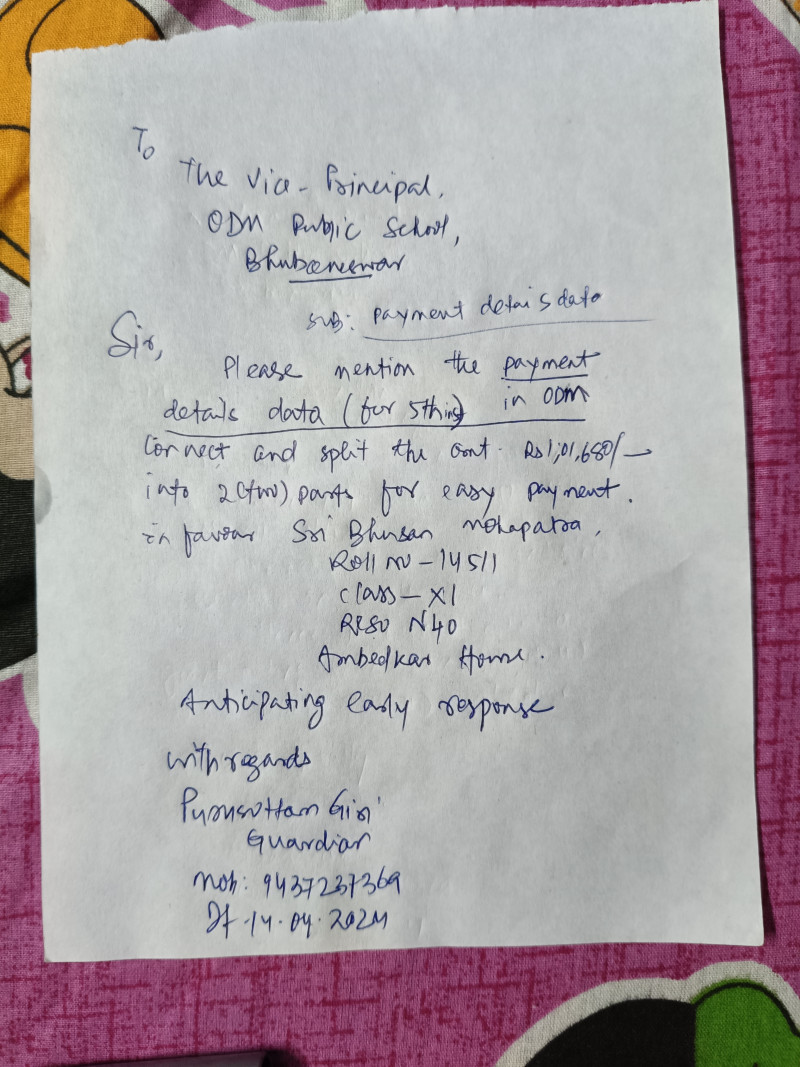 To
The Vice-Principal,
ODM Public School,
Bhubaneswar
Sub: payment details data
Sir,
Please mention the payment
details data (for 5th inst) in ODM
Connect and split the amt. Rs 1,01,680/-
into 2(two) parts for easy payment.
in favour Sri Bhusan Mohapatra,
Roll no - 14511
Class - XI
RESO N40
Ambedkar House.
Anticipating early response
with regards
Purusottam Giri
Guardian
Mob: 9437237369
Dt. 14.04.2024